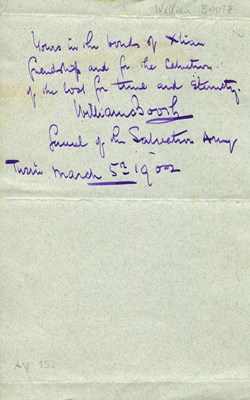 William Booth
Yours in the bonds of Xtian
friendship and for the Salvation
of the lost for time and Eternity.
William Booth
General of the Salvation Army
Turin March 5th 1902